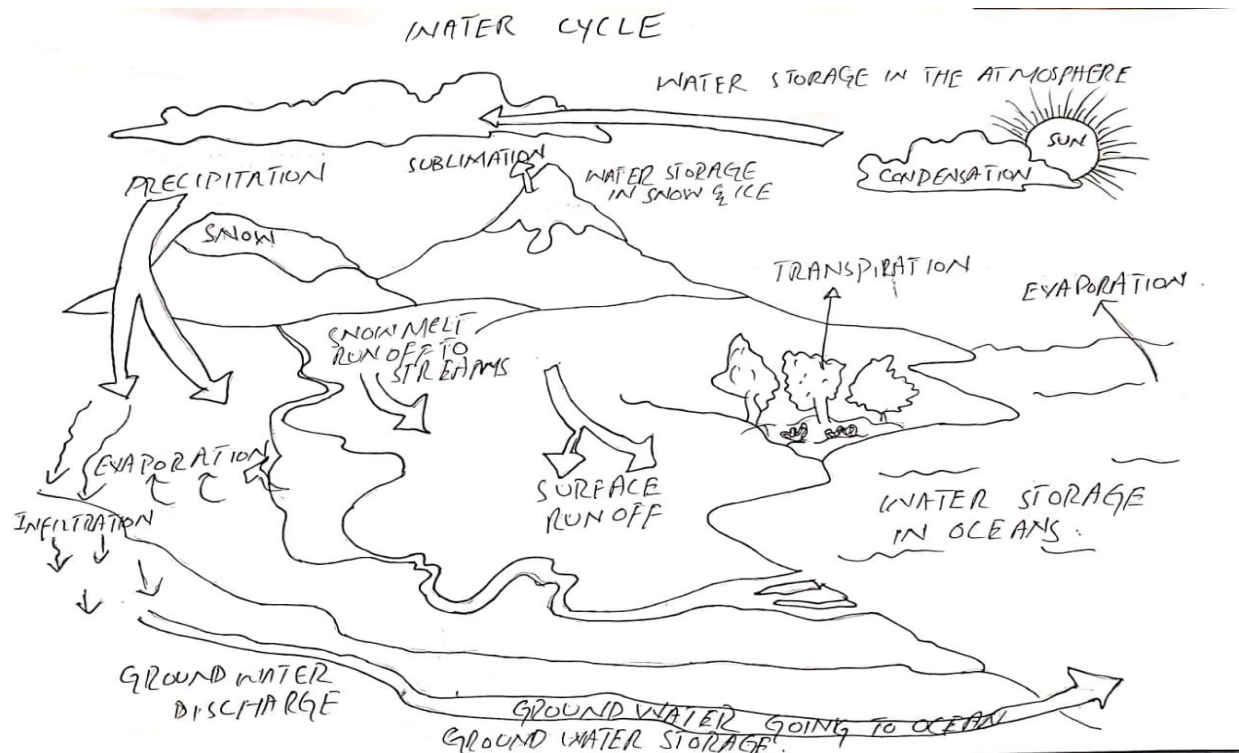 WATER CYCLE
WATER STORAGE IN THE ATMOSPHERE
SUN
CONDENSATION
SUBLIMATION
WATER STORAGE
IN SNOW & ICE
PRECIPITATION
SNOW
TRANSPIRATION
EVAPORATION.
SNOWMELT
RUNOFF TO
STREAMS
EVAPORATION
SURFACE
RUNOFF
WATER STORAGE
IN OCEANS.
INFILTRATION
GROUND WATER
DISCHARGE
GROUND WATER GOING TO OCEAN
GROUND WATER STORAGE.